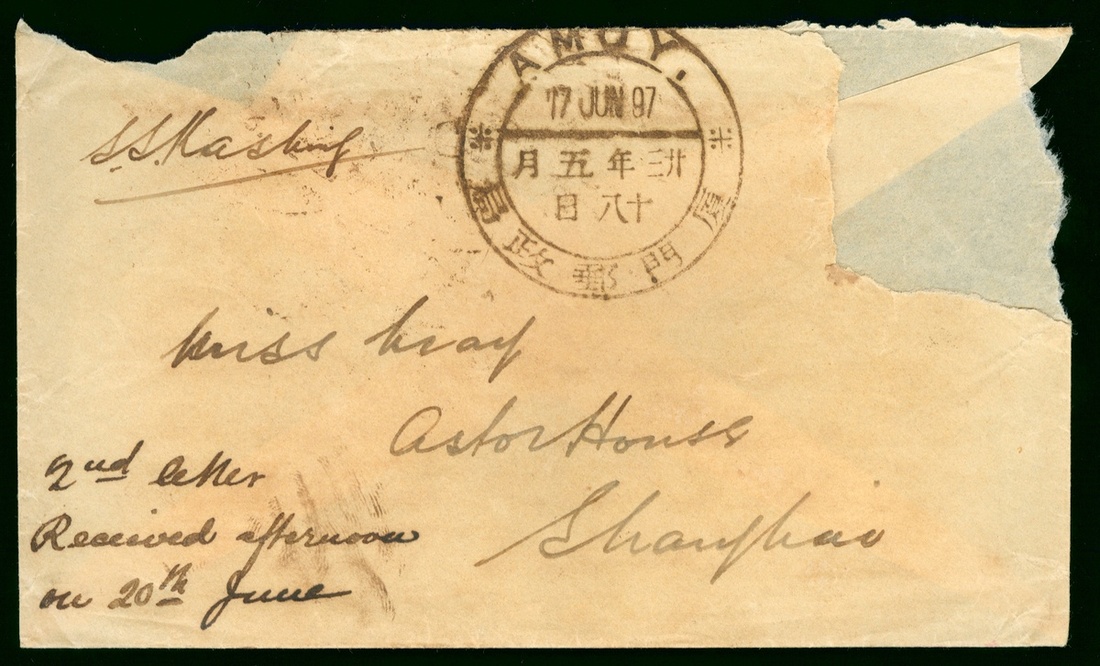 AMOY.
17 JUN 97
廿三年五月
十八日
廈門郵政局
S.S. Kashing
Miss May
Astor House
Shanghai
2nd letter
Received afternoon
on 20th June